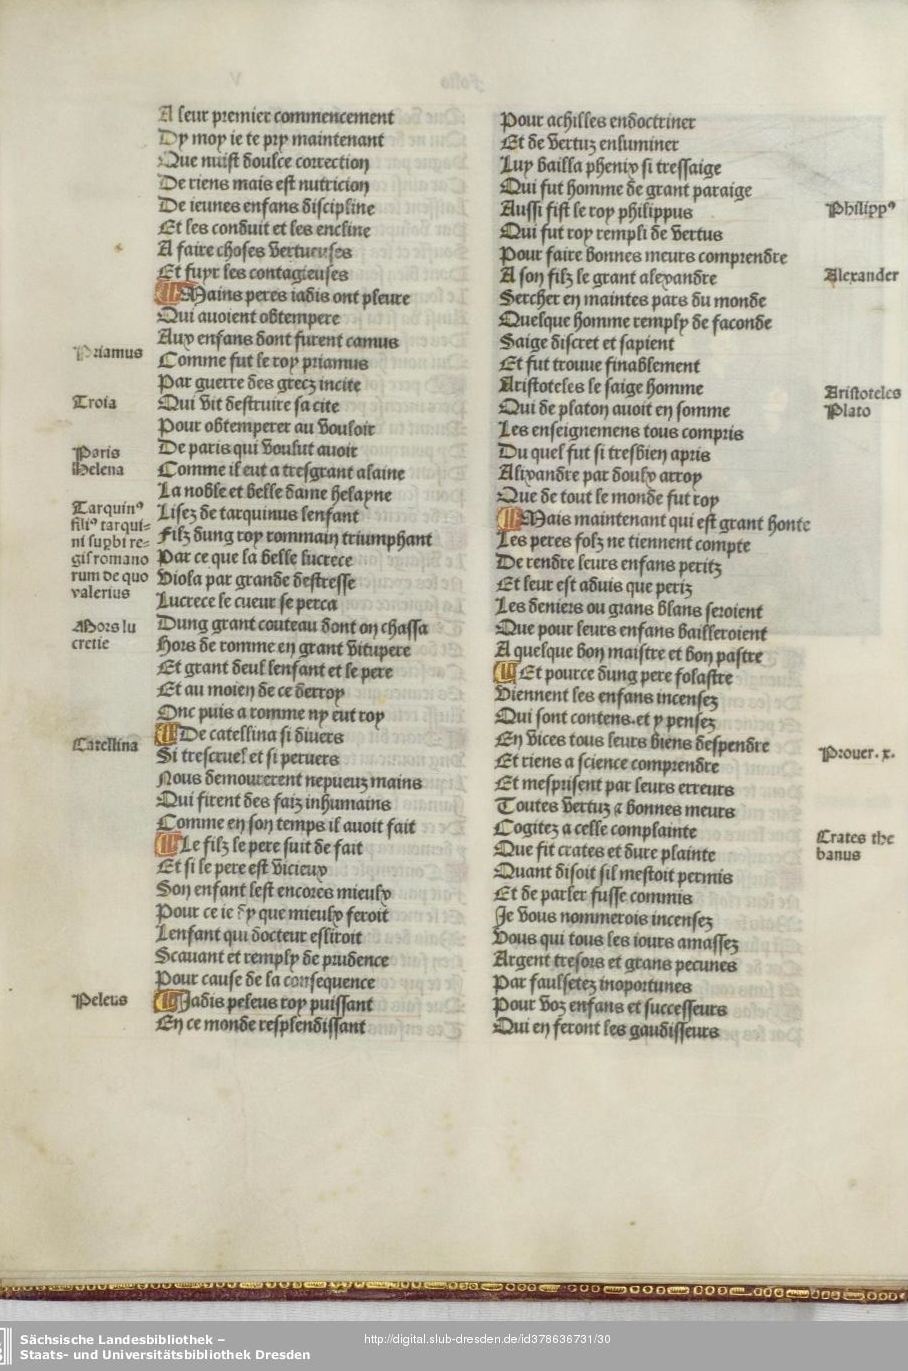 A leur premier commencement
Dy moy ie te pry maintenant
Que nuist doulce correction
De riens mais est nutricion
De ieunes enfans discipline
Et les conduit et les encline
A faire choses vertueuses
Et fuyr les contagieuses
Mains peres iadis ont pleure
Qui auoient obtempere
Aux enfans dont furent camus
Priamus
Comme fut le roy priamus
Par guerre des grecz incite
Troia
Qui vit destruire sa cite
Pour obtemperer au vouloir
Paris
De paris qui voulut auoir
Helena
Comme il eut a tresgrant alaine
La noble et belle dame helayne
Tarquinꝰ
filiꝰ tarqui=
ni supbi re=
gis romano
rum de quo
valerius
Lisez de tarquinus lenfant
Filz dung roy rommain triumphant
Par ce que la belle lucrece
Viola par grande destresse
Lucrece le cueur se perca
Mors lu
cretie
Dung grant couteau dont on chassa
Hors de romme en grant vitupere
Et grant deul lenfant et le pere
Et au moien de ce derroy
Onc puis a romme ny eut roy
Catellina
De catellina si diuers
Si trescruel et si peruers
Nous demourerent nepueuz mains
Qui firent des faiz inhumains
Comme en son temps il auoit fait
Le filz le pere suit de fait
Et si le pere est vicieux
Son enfant lest encores mieulx
Pour ce ie dy que mieulx feroit
Lenfant qui docteur esliroit
Scauant et remply de prudence
Pour cause de la consequence
Peleus
Jadis peleus roy puissant
En ce monde resplendissant
Pour achilles endoctriner
Et de vertuz enluminer
Luy bailla phenix si tressaige
Qui fut homme de grant paraige
Philippꝰ
Aussi fist le roy philippus
Qui fut roy rempli de vertus
Pour faire bonnes meurs comprendre
Alexander
A son filz le grant alexandre
Sercher en maintes pars du monde
Quelque homme remply de faconde
Saige discret et sapient
Et fut trouue finablement
Aristoteles
Aristoteles le saige homme
Plato
Qui de platon auoit en somme
Les enseignemens tous compris
Du quel fut si tresbien apris
Alixandre par doulx arroy
Que de tout le monde fut roy
Mais maintenant qui est grant honte
Les peres folz ne tiennent compte
De rendre leurs enfans peritz
Et leur est aduis que periz
Les deniers ou grans blans seroient
Que pour leurs enfans bailleroient
A quelque bon maistre et bon pastre
Et pource dung pere folastre
Viennent les enfans incensez
Qui sont contens. et y pensez
Prouer. x.
En vices tous leurs biens despendre
Et riens a science comprendre
Et mesprisent par leurs erreurs
Toutes vertuz ⁊ bonnes meurs
Crates the
banus
Cogitez a celle complainte
Que fit crates et dure plainte
Quant disoit sil mestoit permis
Et de parler fusse commis
Je vous nommerois incensez
Vous qui tous les iours amassez
Argent tresors et grans pecunes
Par faulsetez inoportunes
Pour voz enfans et successeurs
Qui en feront les gaudisseurs
Sächsische Landesbibliothek –
Staats- und Universitätsbibliothek Dresden
http://digital.slub-dresden.de/id378636731/30